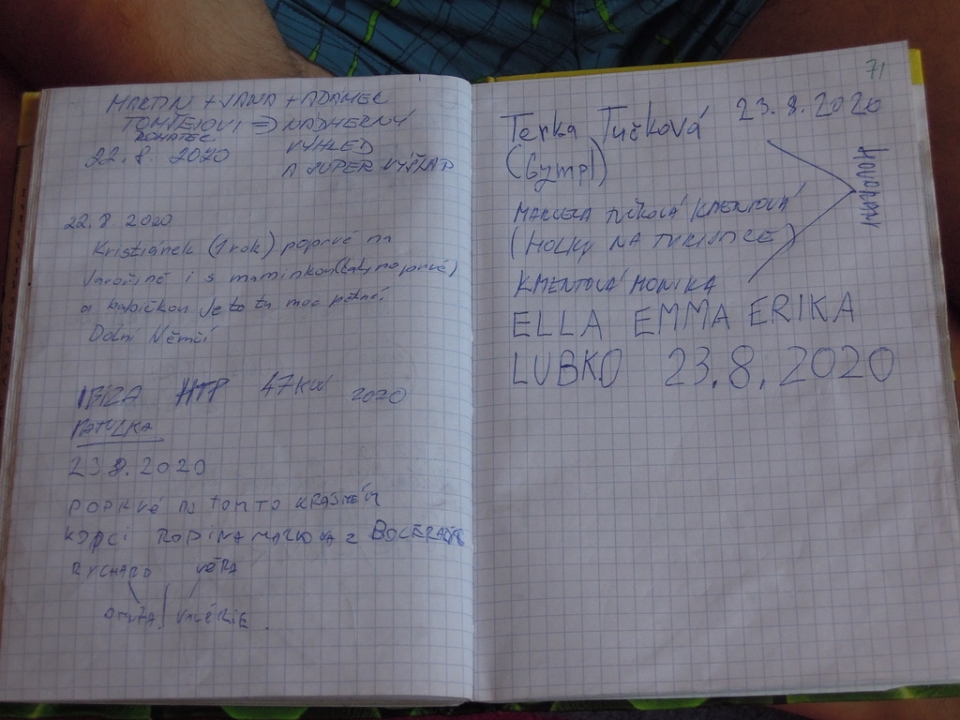 MARTIN + JANA + ADÁMEC
TOMŠEJOVI => NÁDHERNÝ
ROHATEC VÝHLED
22.8. 2020 A SUPER VÝŠLAP
22.8 2020
Kristiánek (1 rok) poprvé na
i s maminkou (taky poprvé)
a babičkou Je to tu moc pěkné
Dolní Němčí
IBIZA HTP 47KW 2020
PATULKA
23.8.2020
POPRVÉ NA TOMTO KRÁSNÉM
KOPCI RODINA MARKOVA Z
RYCHARD VĚRA
VALÉRIE.
71
Terka Tučková 23.8.2020
(Gympl)
MARCELA TUČKOVÁ KMENTOVÁ
(HOLKY NA TURISTICE)
KMENTOVÁ MONIKA
ELLA EMMA ERIKA
LUBKO 23.8.2020